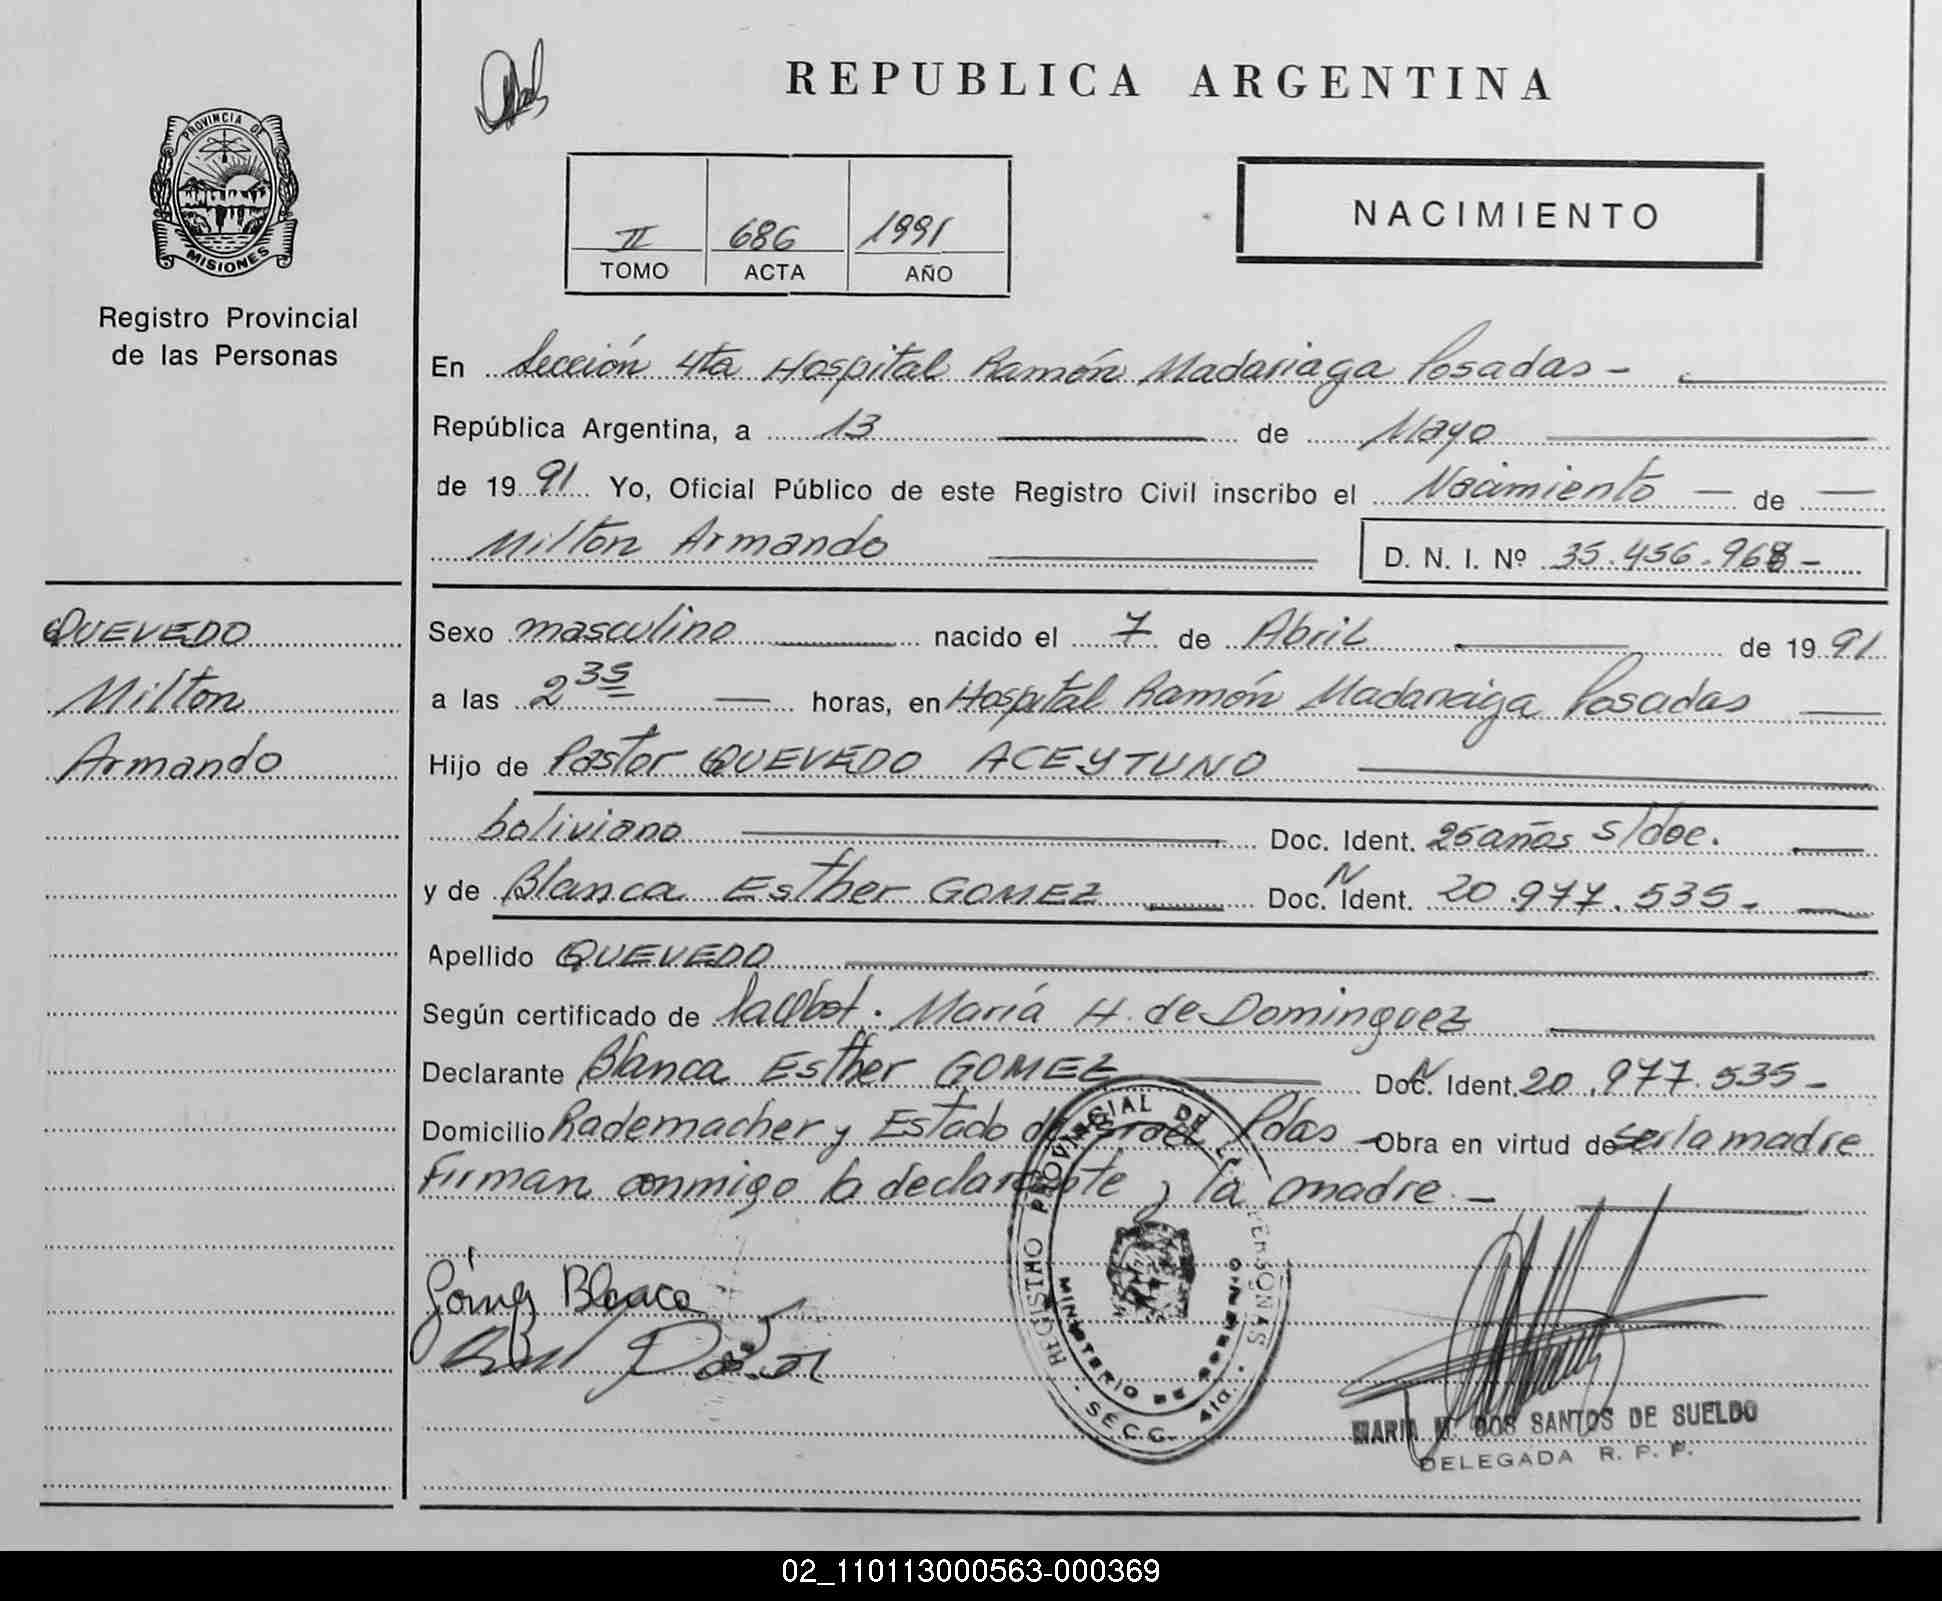 REPUBLICA ARGENTINA
PROVINCIA DE
MISIONES
Registro Provincial
de las Personas
II 686 1991
TOMO ACTA AÑO
NACIMIENTO
En Sección 4ta Hospital Ramón Madariaga Posadas -
República Argentina, a 13 de Mayo
de 1991 Yo, Oficial Público de este Registro Civil inscribo el Nacimiento — de —
Milton Armando
D. N. I. Nº 35.456.968 -
QUEVEDO
Milton
Armando
Sexo masculino nacido el 7 de Abril de 1991
a las 2 35 — horas, en Hospital Ramón Madariaga Posadas
Hijo de Pastor QUEVEDO ACEYTUNO
boliviano Doc. Ident. 25 años s/doc.
y de Blanca Esther GOMEZ Doc. N Ident. 20.977.535 -
Apellido QUEVEDO
Según certificado de María H. de Dominguez
Declarante Blanca Esther GOMEZ Doc. N Ident. 20.977.535 -
Domicilio Rademacher y Estado de Israel Pdas - Obra en virtud de ser la madre
Firman conmigo la declarante y la madre. -
Blanca
REGISTRO PROVINCIAL DE LAS PERSONAS
MINISTERIO DE GOBIERNO
SECC. 4ta.
MARIA M. DOS SANTOS DE SUELDO
DELEGADA R. P. P.
02_110113000563-000369